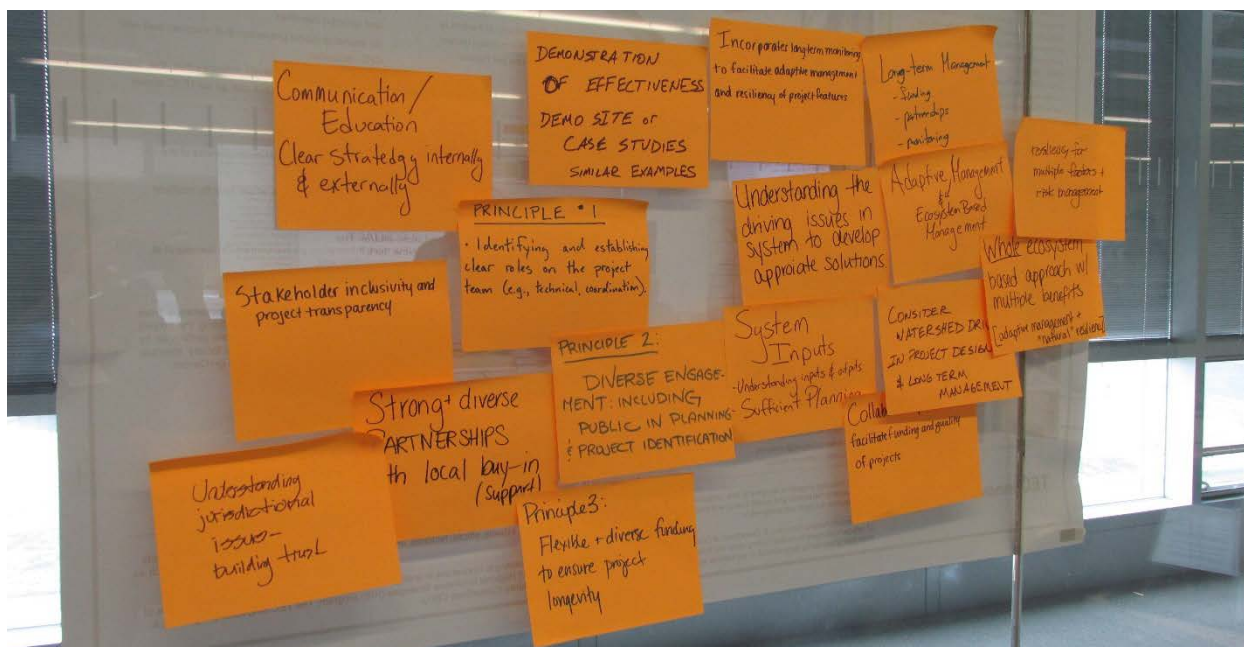 Communication/
Education
Clear Stratedgy internally
& externally
DEMONSTRATION
OF EFFECTIVENESS
DEMO SITE or
CASE STUDIES
SIMILAR EXAMPLES
Incorporates long term monitoring
to facilitate adaptive management
and resiliency of project features
Long-term Management
- funding
- partnerships
- monitoring
resiliency for
multiple factors +
risk management
PRINCIPLE #1
• Identifying and establishing
clear roles on the project
team (e.g., technical, coordination).
Understanding the
driving issues in
system to develop
approiate solutions.
Adaptive Management
&
Ecosystem Based
Management
Whole ecosystem
based approach w/
multiple benefits
[adaptive management +
"natural" resilience]
Stakeholder inclusivity and
project transparency
PRINCIPLE 2:
DIVERSE ENGAGE-
MENT: INCLUDING
PUBLIC IN PLANNING
& PROJECT IDENTIFICATION
System
Inputs
- Understanding inputs & outputs
- Sufficient Planning
CONSIDER
WATERSHED
IN PROJECT DESIGN
& LONG TERM
MANAGEMENT
Strong + diverse
PARTNERSHIPS
local buy-in
(support)
facilitate funding and quality
of projects
Understanding
jurisdictional
issues-
building trust
Principle 3:
Flexible + diverse funding
to ensure project
longevity